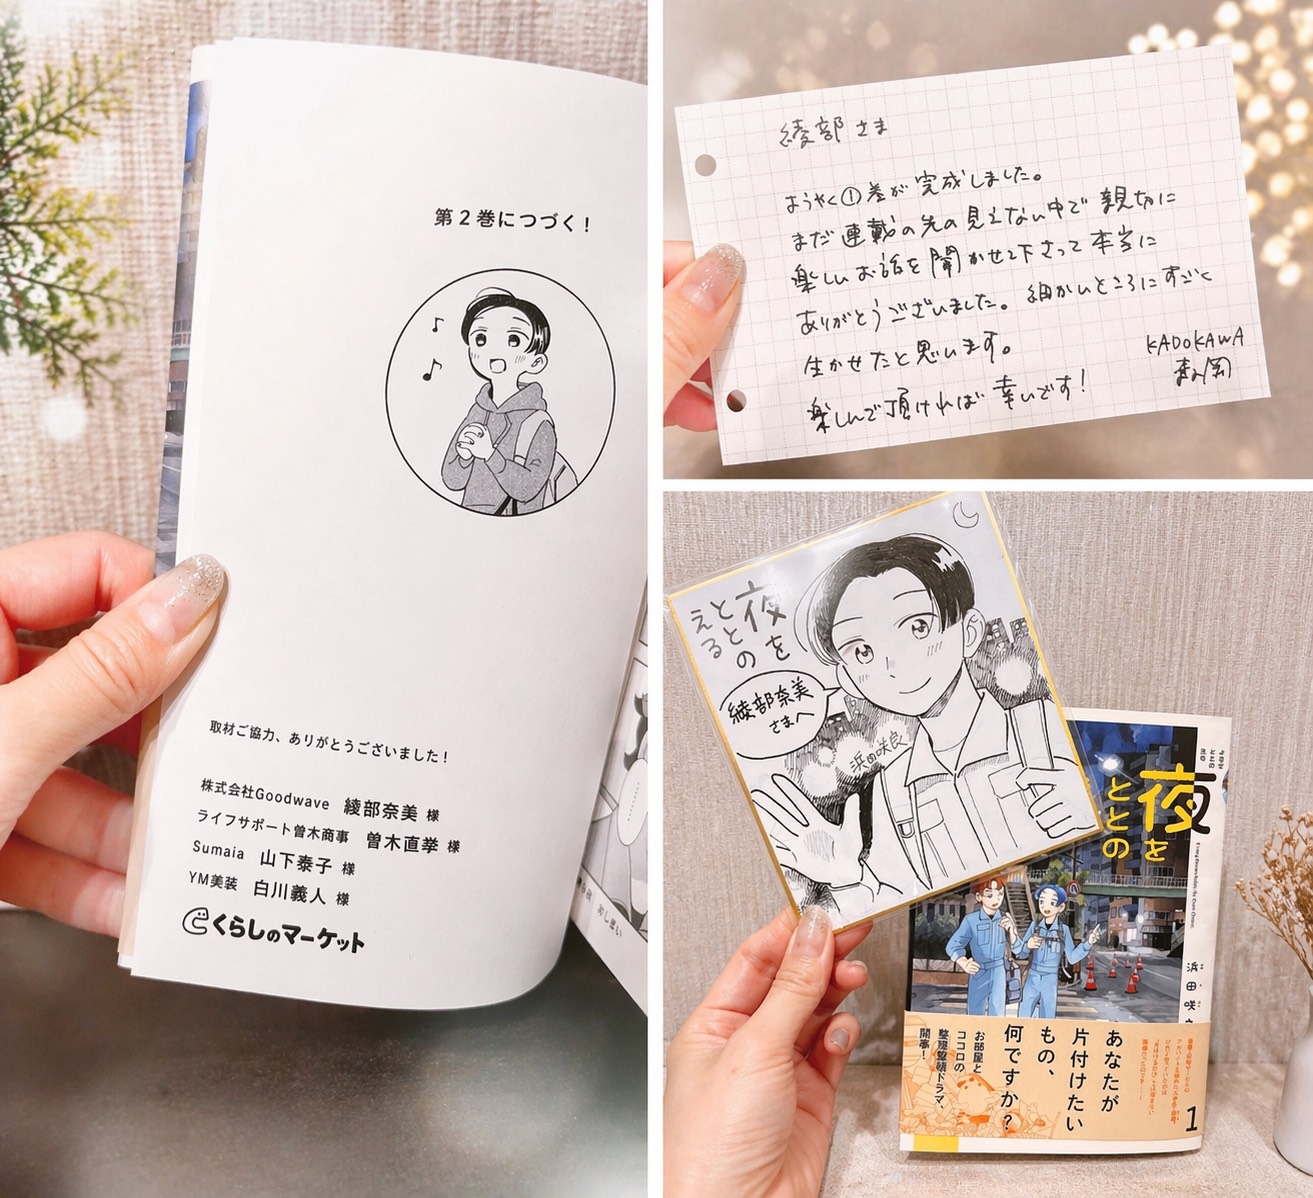 第2巻につづく!
取材ご協力、ありがとうございました!
株式会社Goodwave 綾部奈美 様
ライフサポート曽木商事 曽木直挙 様
Sumaia 山下泰子 様
YM美装 白川義人 様
くらしのマーケット
綾部さま
ようやく①巻が完成しました。
まだ連載の先の見えない中で親切に
楽しいお話を聞かせて下さって本当に
ありがとうございました。細かいところにすごく
生かせたと思います。
楽しんで頂ければ幸いです!
KADOKAWA
森岡
夜を
ととの
える
綾部奈美
さまへ
浜田咲良
夜を
ととの
浜田咲
あなたが
片付けたい
もの、
何ですか?
お部屋と
ココロの
整理整頓ドラマ、
開幕!
1